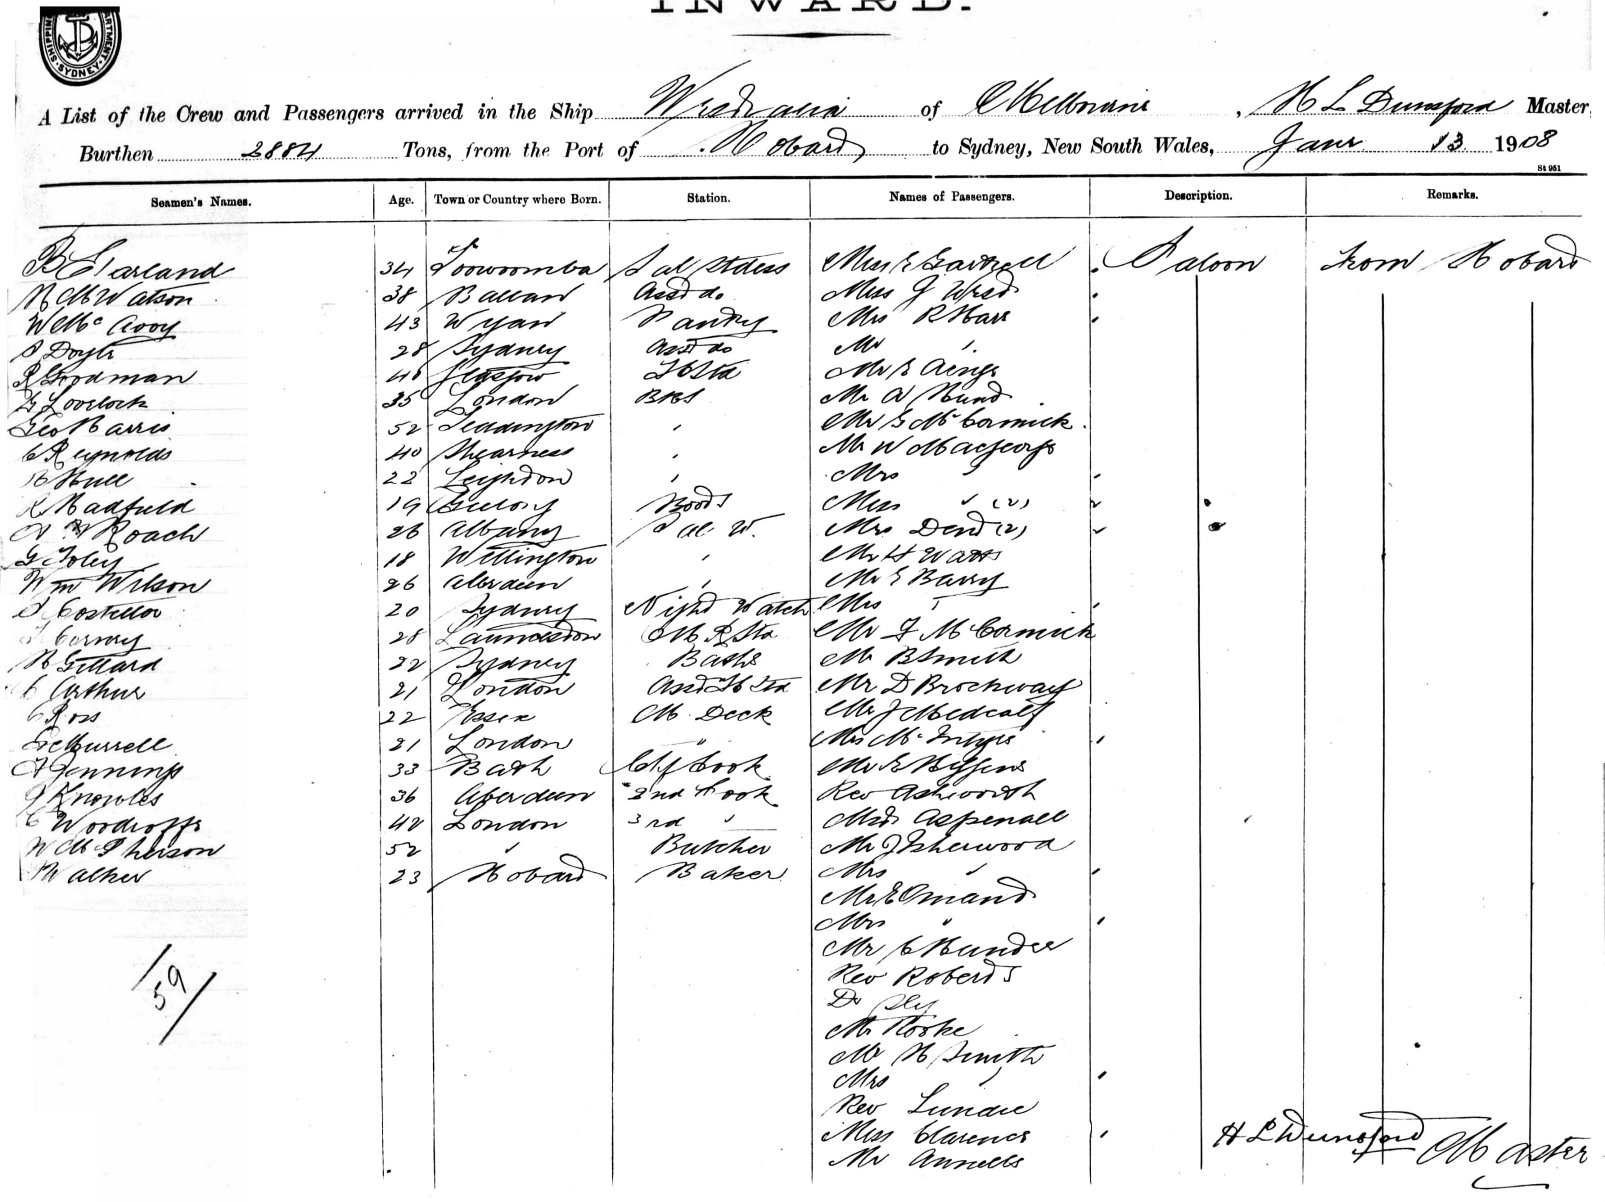 INWARD.
SHIPPING DEPARTMENT SYDNEY
A List of the Crew and Passengers arrived in the Ship Westralia of Melbourne, H L Dunsford Master,
Burthen 2884 Tons, from the Port of Hobart to Sydney, New South Wales, Jany 13 1908
St 951
Seamen's Names. Age. Town or Country where Born. Station. Names of Passengers. Description. Remarks.
B Garland 34 Toowoomba Sal Stdess Miss E Gartrell Saloon from Hobart
R McWatson 38 Ballarat Asst do Miss J West
W McAvoy 43 Pantry Mrs R Harr
S Doyle 28 Sydney Asst do Mr "
R Goodman 40 Glasgow Mr E
G Lovelock 35 London BRS Mr A Hund
Geo Harris 52 Teddington " Mr G McCormick
C Reynolds 40 Shearness " Mr W MacGeorge
Hull 22 Leighton " Mrs "
R Hadfield 19 Geelong Boots Miss " (2)
A H Roach 26 Albany Sal. W. Mrs Dent (2)
G Foley 18 Wellington " Mr H Watts
Wm Wilson 26 Aberdeen " Mr E Barry
S Costelloe 20 Sydney Night Watch Mrs "
Conway 28 Launceston M R Std Mr F McCormick
H Gillard 22 Sydney Baths Mr B Smith
C Arthur 21 London Mr D Brockway
C Ross 22 Essex M. Deck Mr J Medcalf
G Murrell 21 London " Mrs McIntyre
A Jennings 33 Bath Chf Cook Mr E Higgins
J Knowles 36 Aberdeen 2nd Cook Rev Ashworth
C Woodroffe 42 London 3rd " Mrs Aspenall
W McPherson 52 " Butcher Mr J Isherwood
Walker 23 Hobart Baker Mrs "
Mr E Omand
Mrs "
Mr C Hundee
Rev Roberts
Dr Sly
Mr Rooke
Mr H Smith
Mrs "
Rev Lundie
Miss Clarence
Mr Annells
59
H L Dunsford Master